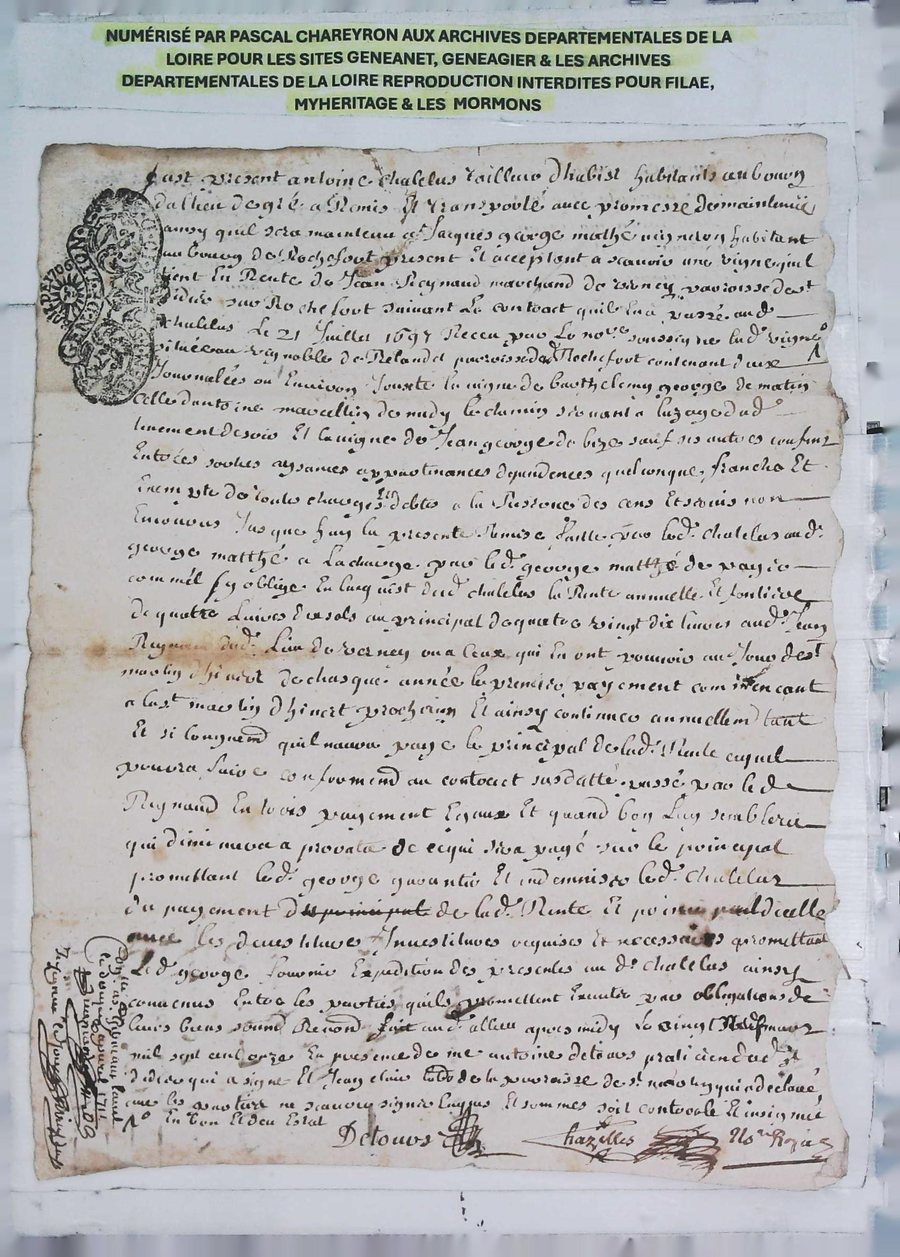 NUMÉRISÉ PAR PASCAL CHAREYRON AUX ARCHIVES DEPARTEMENTALES DE LA
LOIRE POUR LES SITES GENEANET, GENEAGIER & LES ARCHIVES
DEPARTEMENTALES DE LA LOIRE REPRODUCTION INTERDITES POUR FILAE,
MYHERITAGE & LES MORMONS
fust present antoine chalelus tailleur dhabist habitant au bourg
dallieu de gré a Remis Et transporté avec promesse de maintenir
ainsy quil sera maintenu a Jacques george mathé vigneron habitant
au bourg de Rochefort present Et acceptant a scavoir une vigne quil
tient En Rente de Jean Reynaud marchand de verney parroisse de st
didier sur Rochefort suivant Le contract quil luy a passé aud
chalelus Le 21 Juillet 1697 Receu par Le nore soussigné lad vigne
située au vignoble de parroisse de Rochefort contenant
Journalées ou Environ Jouxte la vigne de barthelemy george de matin
celle dantoine marcellin de midy le chemin
de soir Et la vigne de Jean george de bize sauf ses autres confins
Entrées sorties aysances appartenances dependences quelconque, franche Et
Exempte de toute charges debte a la Reserve des cens Et servis non
Encourus Jusque huy la presente Remise faitte par led. chalelus aud.
george matthé a La charge par led. george matthé de payer
comme il sy oblige En lacquist dud chalelus la Rente annuelle Et fonciere
de quatre Livres dix sols au principal de quatre vingt dix livres aud. Jean
Reynaud dud. Lieu de verney ou a ceux qui En ont pouvoir au Jour de st
martin dhivert de chasque année le premier payement commencant
a la st martin dhivert prochain Et ainsy continuer annuellemt tant
Et si longuemt quil naura payé le principal de lad. Rente cequil
pourra faire conformemt au contract susdatté passé par le d
Reynaud En trois payement Egaux Et quand bon Luy semblera
qui diminuera a prorata de ce qui sera payé sur le principal
promettant led. george garantir Et indemniser led. chalelus
du payement du principal de lad. Rente Et
avec les devestitures Investitures requises Et necessaires promettant
Led. george fournir Expedition des presentes au d. chalelus ainsy
convenus Entre les parties quils promettent Executer par obligations de
leurs biens soumd Renond fait aud allieu apres midy Le vingt
mil sept cent onze En presence de me antoine detours praticien de st
didier qui a signé Et Jean de la parroisse de st qui a declaré
avec les parties ne scavoir signer Enquis Et sommés soit controllé Et insignué
En bon Et deu Estat
Detours Chazelles Nore Royal